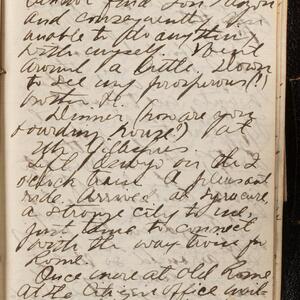 cannot find Jon
and consequently I am
unable to do anything
with myself. Went
around a little. Down
to see my prosperous(!)
brother
Dinner (how are you
boarding house?) at
Mr
Left on the 2
o'clock train A pleasant
ride. Arrived at Syracuse
a strange city to me,
just time to connect
with the way train for
Rome.
Once more at Old Rome
at the Citizen office